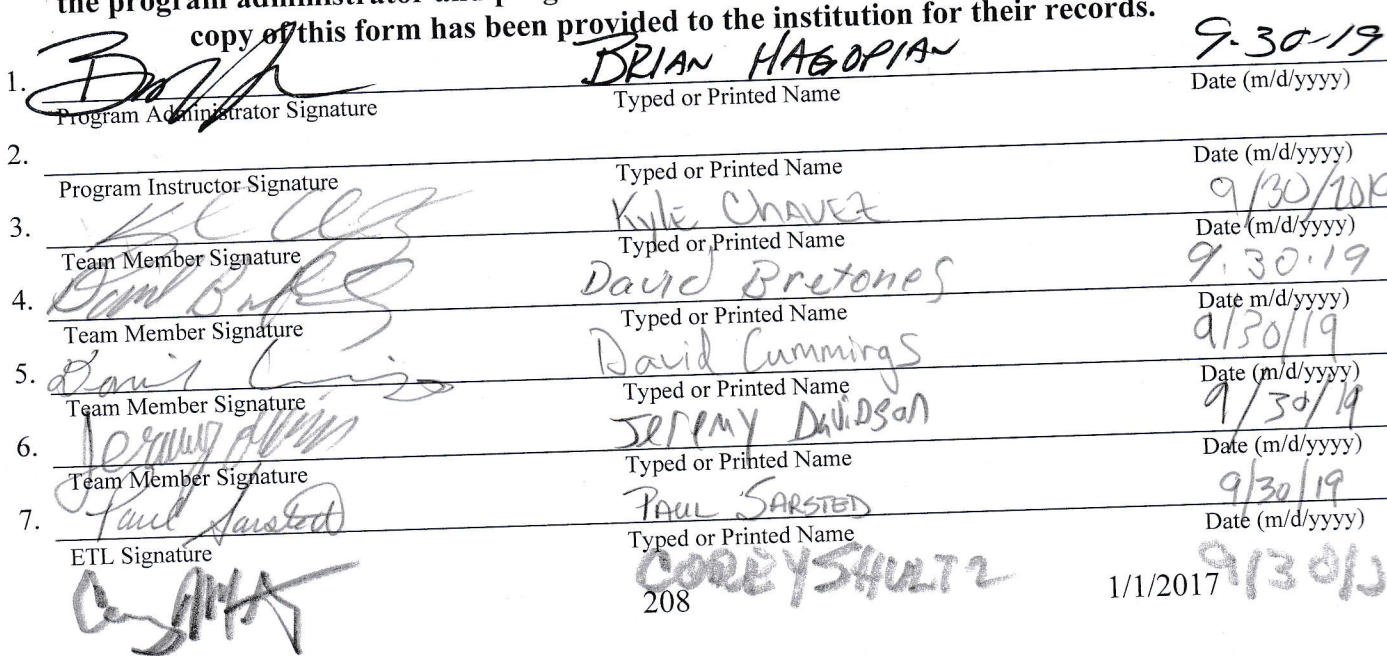 the program administrator and prog
copy of this form has been provided to the institution for their records.
1. BRIAN HAGOPIAN 9-30-19
Program Administrator Signature Typed or Printed Name Date (m/d/yyyy)
2.
Program Instructor Signature Typed or Printed Name Date (m/d/yyyy)
3. Kyle CHAVEZ 9/30/2019
Team Member Signature Typed or Printed Name Date (m/d/yyyy)
4. David Bretones 9.30.19
Team Member Signature Typed or Printed Name Date m/d/yyyy)
5. David Cummings 9/30/19
Team Member Signature Typed or Printed Name Date (m/d/yyyy)
6. Jeremy Davidson 9/30/19
Team Member Signature Typed or Printed Name Date (m/d/yyyy)
7. Paul Sarsted PAUL SARSTED 9/30/19
ETL Signature Typed or Printed Name Date (m/d/yyyy)
COREY SHULTZ 9/30/
208 1/1/2017